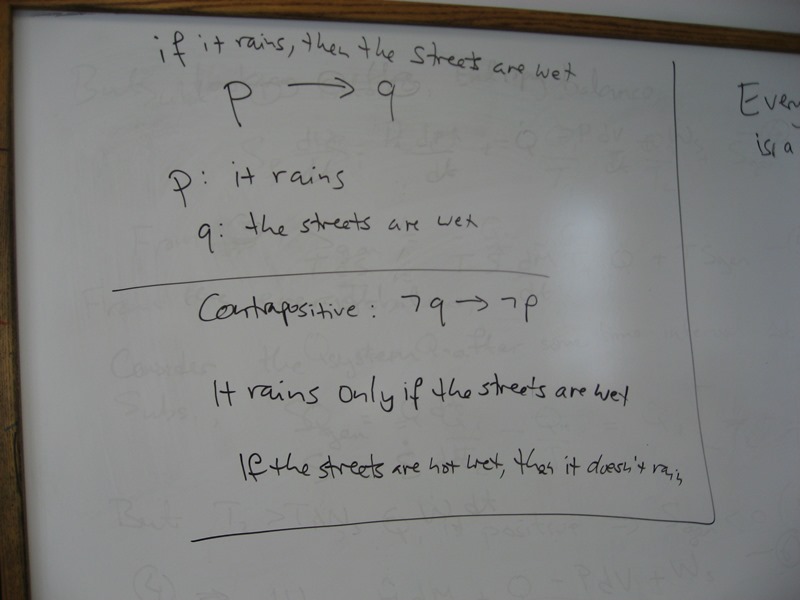 if it rains, then the streets are wet
p → q
p: it rains
q: the streets are wet
Contrapositive: ¬q → ¬p
It rains only if the streets are wet
If the streets are not wet, then it doesn't rain
is a